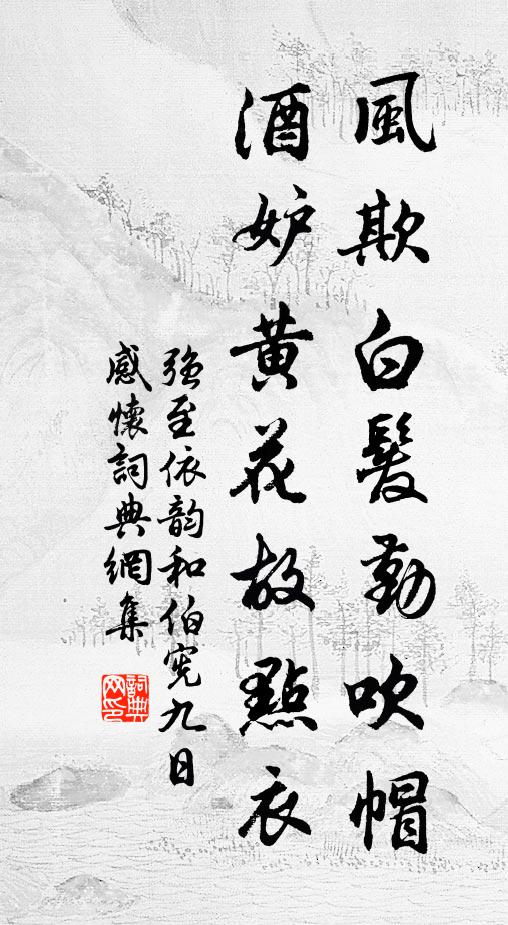 風欺白髮勤吹帽
酒妒黃花故點衣
强至依韵和伯宪九日
感懷詞典網集
詞典網印